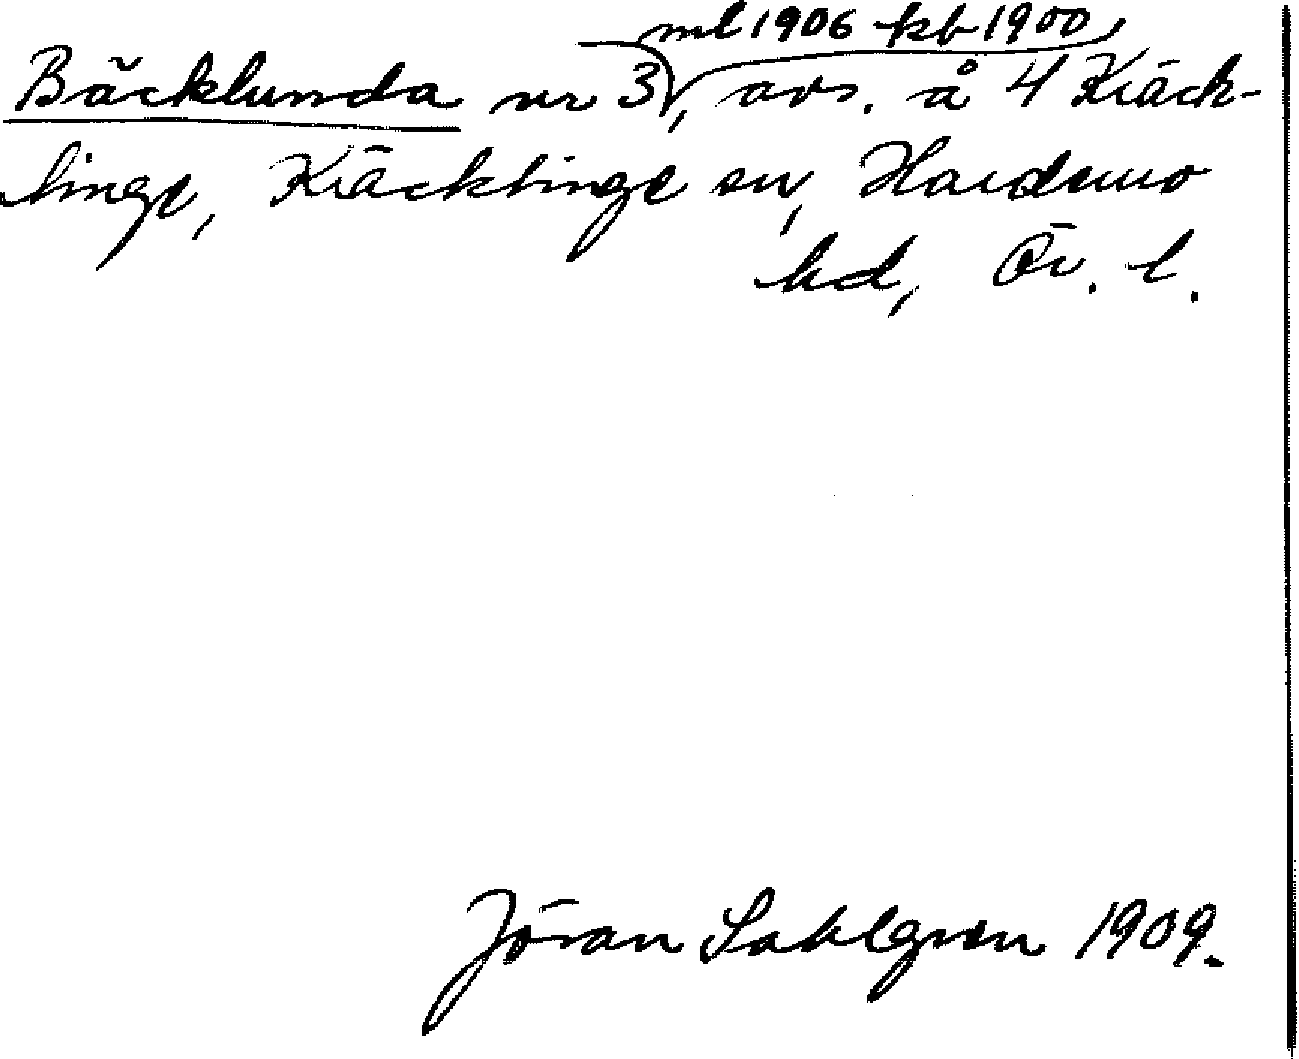 ml 1906 kb 1900,
Bäcklunda nr 3, avs. å 4 Kräck-
linge, Kräcklinge sn, Hardemo
hd, Ör. l.
Jöran Sahlgren 1909.